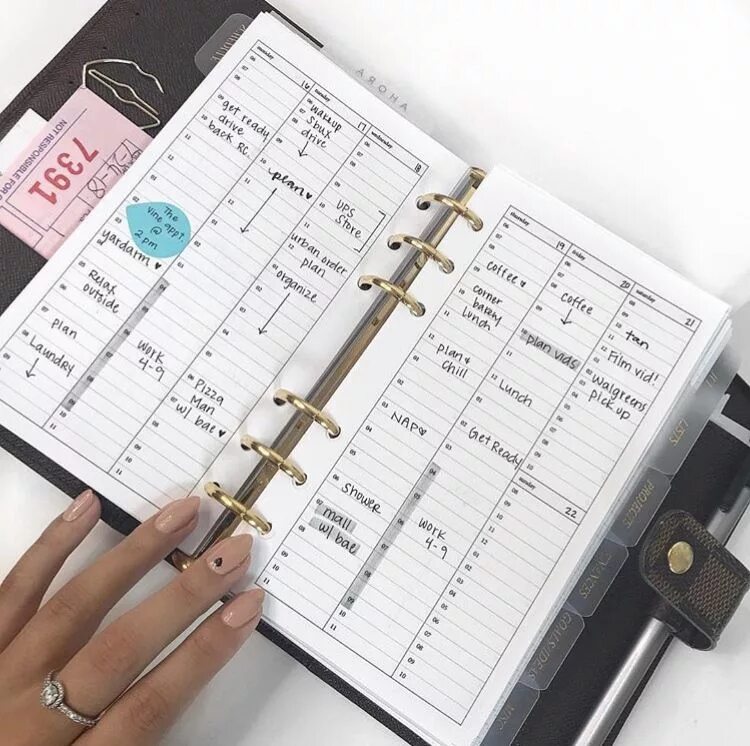 AHORA
NOT RESPONSIBLE FOR
7391
monday
16
get ready
drive
back RC.
The
vine appt.
@
2 pm
yardarm ♥
Relax
outside
plan
Laundry
tuesday
17
wakeup
Sbux
drive
plan ♥
Work
4-9
wednesday
18
UPS
Store
urban order
plan
organize
Pizza
Man
w/ bae ♥
thursday
19
coffee ♥
corner
bakery
Lunch
plan &
chill
NAP ♡
Shower
mall
w/ bae
friday
20
coffee
plan vids
Lunch
Get Ready
Work
4-9
saturday
21
tan
Film vid!
Walgreens
pick up
sunday
22
LISTS
PROJECTS
NANCES
GOALS/IDEAS
MISC